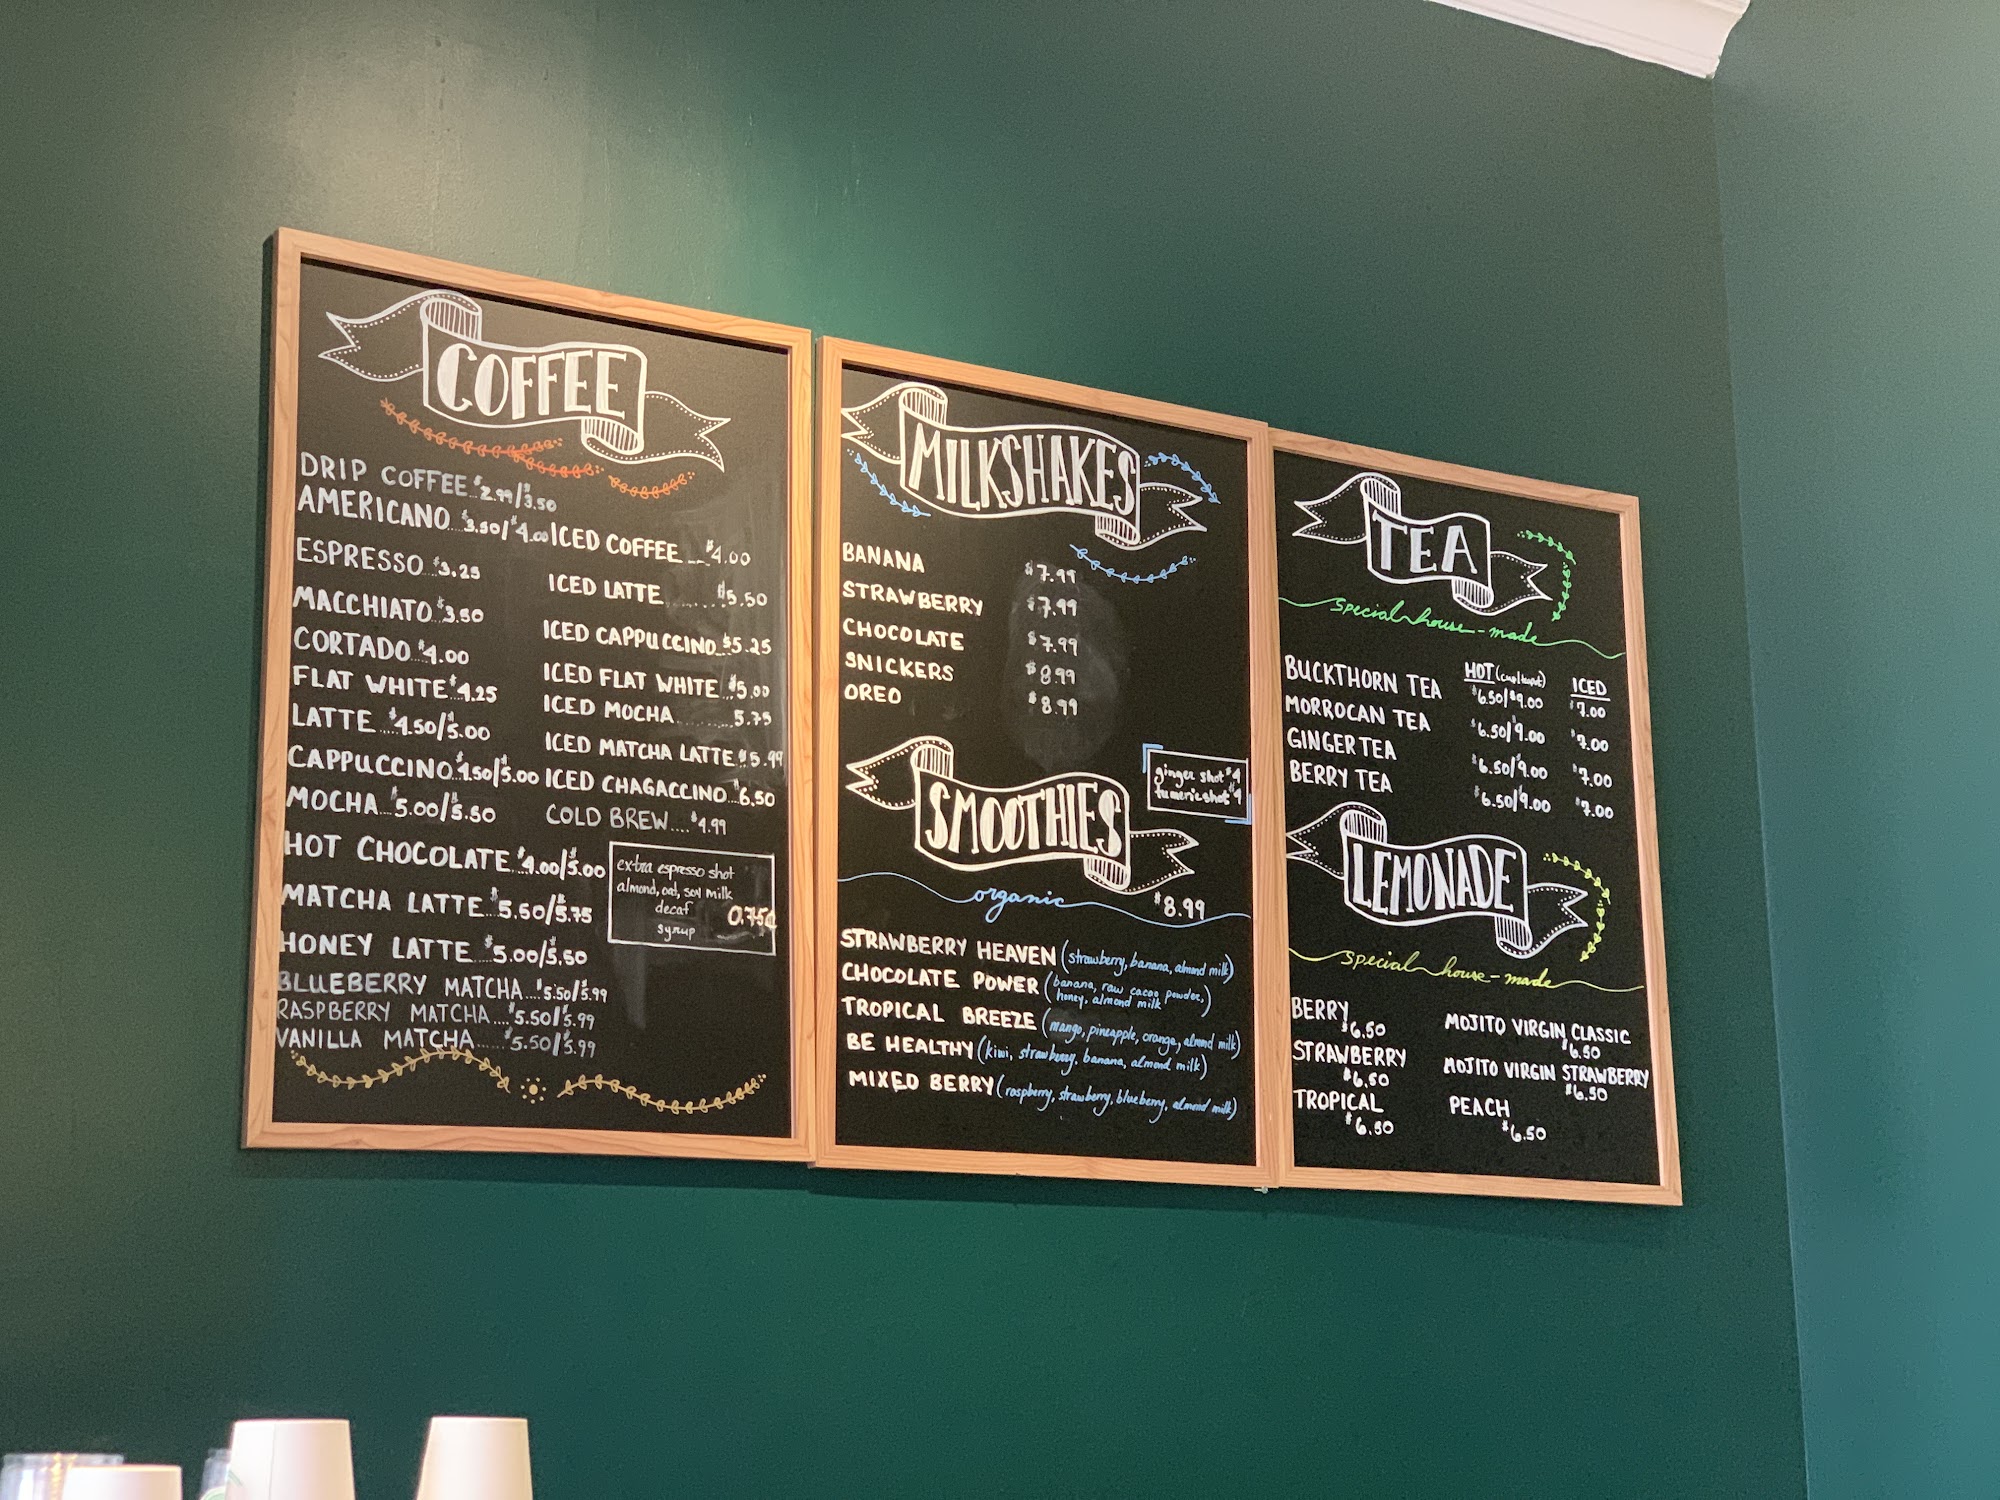 COFFEE
DRIP COFFEE..$2.99/$3.50
AMERICANO...$3.50/$4.00
ESPRESSO...$3.25
MACCHIATO.$3.50
CORTADO.$4.00
FLAT WHITE.$4.25
LATTE...$4.50/$5.00
CAPPUCCINO.$4.50/$5.00
MOCHA...$5.00/$5.50
HOT CHOCOLATE.$4.00/$5.00
MATCHA LATTE..$5.50/$5.75
HONEY LATTE..$5.00/$5.50
BLUEBERRY MATCHA...$5.50/$5.99
RASPBERRY MATCHA...$5.50/$5.99
VANILLA MATCHA.....$5.50/$5.99
ICED COFFEE...$4.00
ICED LATTE.......$5.50
ICED CAPPUCCINO..$5.25
ICED FLAT WHITE..$5.00
ICED MOCHA.......5.75
ICED MATCHA LATTE.$5.99
ICED CHAGACCINO..$6.50
COLD BREW....$4.99
extra espresso shot
almond, oat, soy milk
decaf
syrup
0.75¢
MILKSHAKES
BANANA $7.99
STRAWBERRY $7.99
CHOCOLATE $7.99
SNICKERS $8.99
OREO $8.99
ginger shot $4
tumeric shot $4
SMOOTHIES
organic $8.99
STRAWBERRY HEAVEN (strawberry, banana, almond milk)
CHOCOLATE POWER (banana, raw cacao powder,
honey, almond milk)
TROPICAL BREEZE (mango, pineapple, orange, almond milk)
BE HEALTHY (kiwi, strawberry, banana, almond milk)
MIXED BERRY (raspberry, strawberry, blueberry, almond milk)
TEA
special house-made
HOT (cup/teapot) ICED
BUCKTHORN TEA $6.50/$9.00 $7.00
MORROCAN TEA $6.50/$9.00 $7.00
GINGER TEA $6.50/$9.00 $7.00
BERRY TEA $6.50/$9.00 $7.00
LEMONADE
special house-made
BERRY
$6.50
STRAWBERRY
$6.50
TROPICAL
$6.50
MOJITO VIRGIN CLASSIC
$6.50
MOJITO VIRGIN STRAWBERRY
$6.50
PEACH
$6.50